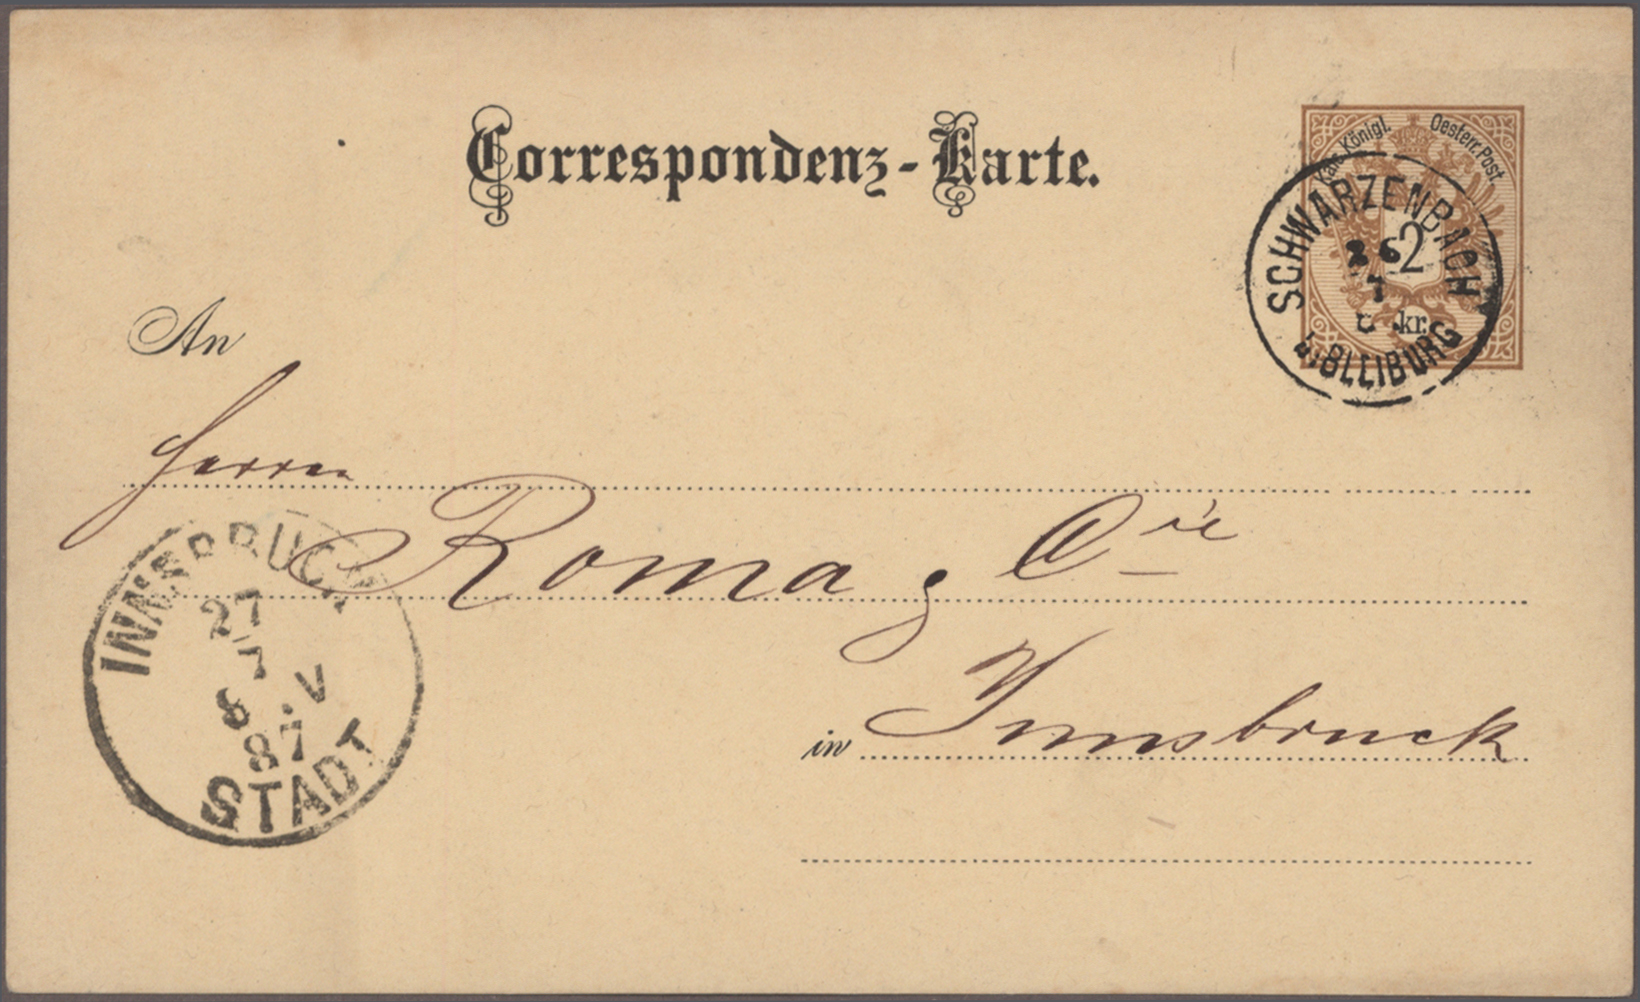 Correspondenz-Karte.
Kais. Königl. Oesterr. Post
2
kr.
SCHWARZENBACH
26
7
B. BLEIBURG
An
Herren
Roma & Cie
in Innsbruck
INNSBRUCK
27
7
8 .V
87
STADT